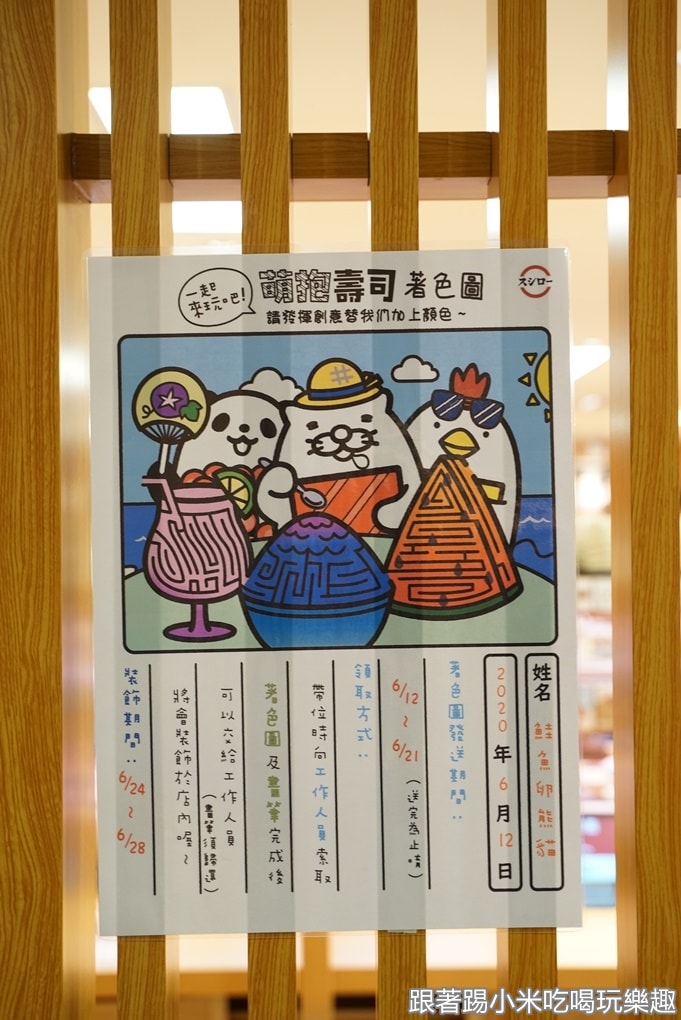 一起
來玩吧!
萌抱壽司 著色圖
スシロー
請發揮創意替我們加上顏色~
姓名 鮭魚卵熊貓
2020年6月12日
著色圖發送期間:
6/12~6/21(送完為止唷。)
領取方式:
帶位時向工作人員索取
著色圖及畫筆完成後
可以交給工作人員(畫筆須歸還)
將會裝飾於店內喔~
裝飾期間:6/24~6/28
跟著踢小米吃喝玩樂趣